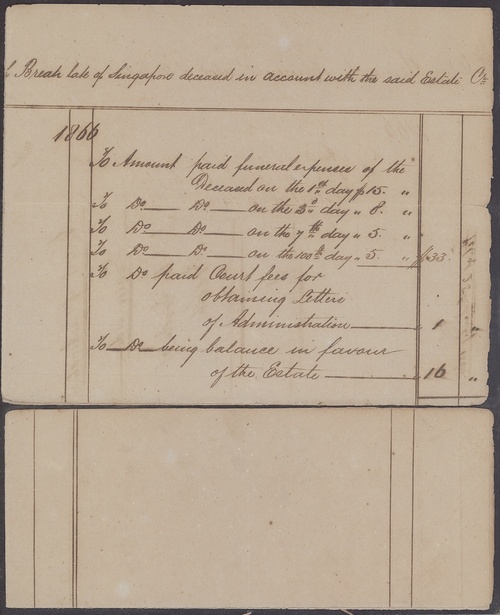 Breah late of Singapore deceased in account with the said Estate Cr
1866
To Amount paid funeral expenses of the
Deceased on the 1st day $15. "
To Do Do on the 3d day " 8. "
To Do Do on the 7th day " 5. "
To Do Do on the 100th day " 5. " $33.
To Do paid Court fees for
obtaining Letters
of Administration 1
To Do being balance in favour
of the Estate 16 "